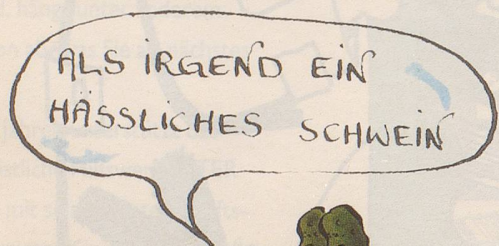 ALS IRGEND EIN
HÄSSLICHES SCHWEIN